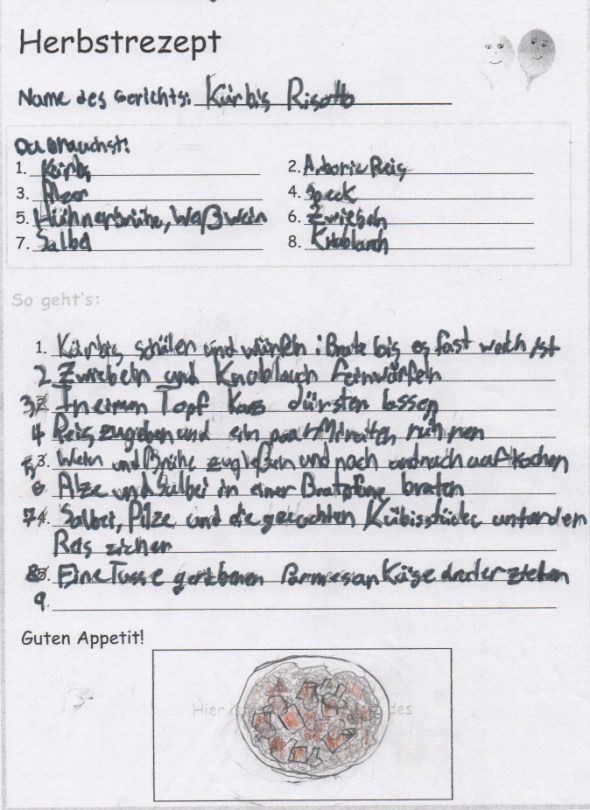 Herbstrezept
Name des Gerichts: Kürbis Risotto
Du brauchst:
1. Kürbis 2. Arborio Reis
3. Pilze 4. Speck
5. Hühnerbrühe, Weißwein 6. Zwiebeln
7. Salbei 8. Knoblauch
So geht's:
1. Kürbis schälen und würfeln: Brate bis es fast weich ist
2 Zwiebeln und Knoblauch feinwürfeln
3. In einem Topf dürsten lassen
4 Reis zugeben und ein paar Minuten rühren
5. Wein und Brühe zugießen und nach und nach aufkochen
6 Pilze und Salbei in einer Bratpfanne braten
7. Salbei, Pilze und die gecochten Kübisstücke unter den
Reis ziehen
8. Eine Tasse geriebenen Parmesan Käse drunter ziehen
9.
Guten Appetit!
Hier des